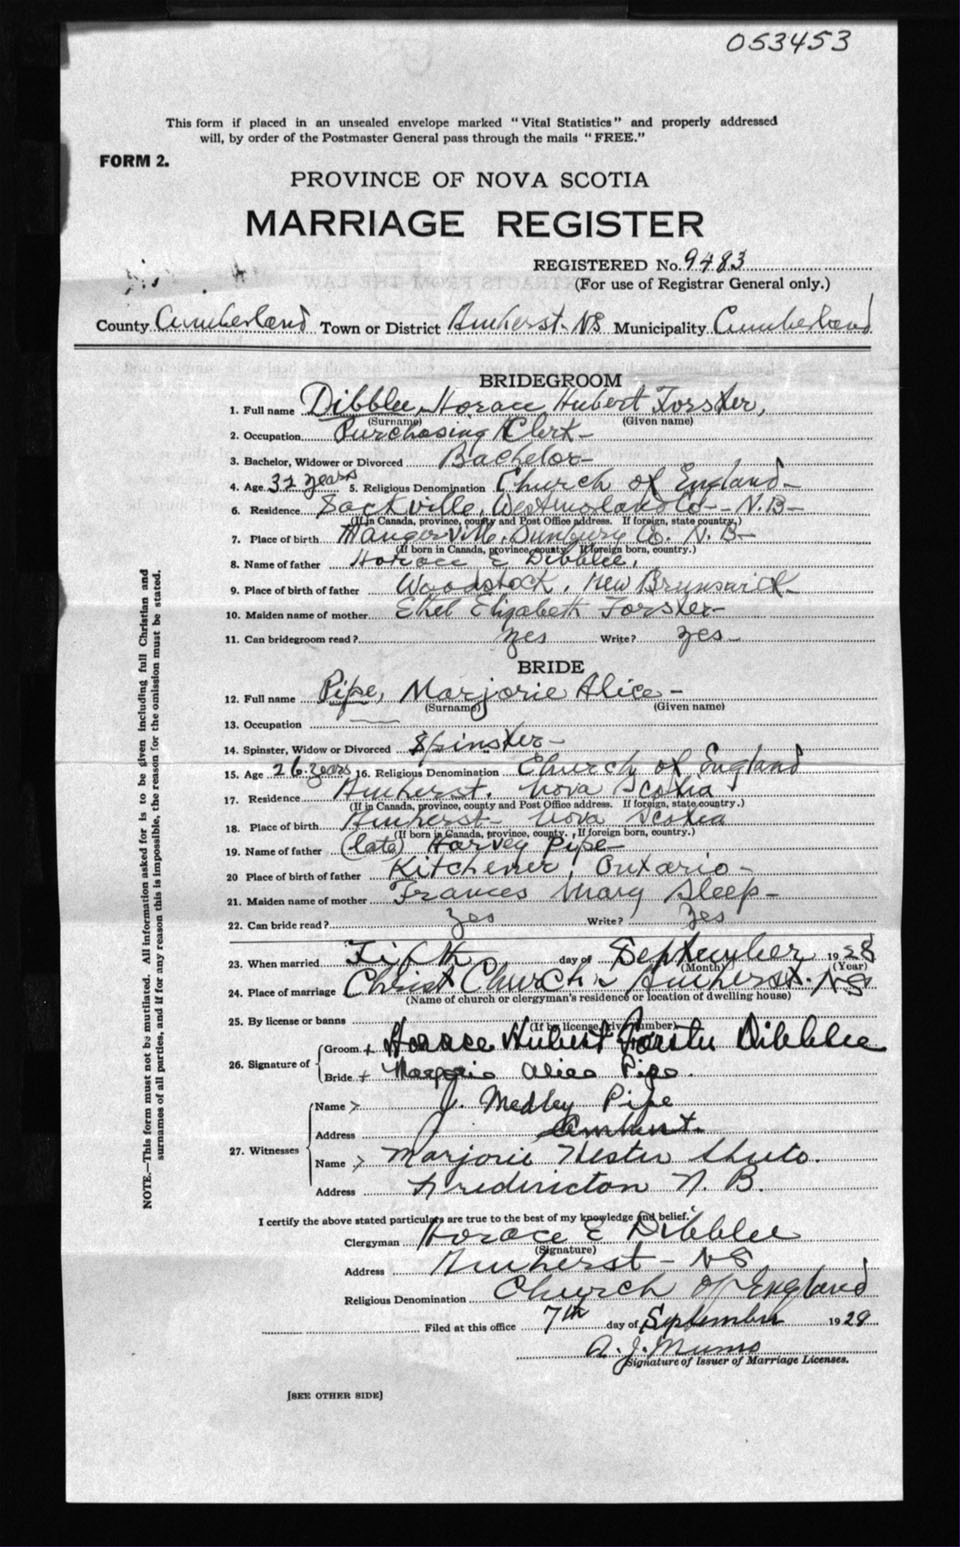 053453
This form if placed in an unsealed envelope marked "Vital Statistics" and properly addressed
will, by order of the Postmaster General pass through the mails "FREE."
FORM 2.
PROVINCE OF NOVA SCOTIA
MARRIAGE REGISTER
REGISTERED No. 9483
(For use of Registrar General only.)
County Cumberland Town or District Amherst- NS Municipality Cumberland
BRIDEGROOM
1. Full name Dibblee, Horace Hubert Forster,
(Surname) (Given name)
2. Occupation Purchasing Clerk-
3. Bachelor, Widower or Divorced Bachelor-
4. Age 32 years 5. Religious Denomination Church of England-
6. Residence Sackville, Westmorland Co- N.B-
(If in Canada, province, county and Post Office address. If foreign, state country.)
7. Place of birth Maugerville, Sunbury Co. N.B-
(If born in Canada, province, county. If foreign born, country.)
8. Name of father Horace E Dibblee,
9. Place of birth of father Woodstock, New Brunswick-
10. Maiden name of mother Ethel Elizabeth Forster-
11. Can bridegroom read? yes Write? yes-
BRIDE
12. Full name Pipe, Marjorie Alice-
(Surname) (Given name)
13. Occupation
14. Spinster, Widow or Divorced Spinster-
15. Age 26 years 16. Religious Denomination Church of England
17. Residence Amherst, Nova Scotia
(If in Canada, province, county and Post Office address. If foreign, state country.)
18. Place of birth Amherst- Nova Scotia
(If born in Canada, province, county. If foreign born, country.)
19. Name of father (late) Harvey Pipe-
20 Place of birth of father Kitchener, Ontario-
21. Maiden name of mother Frances Mary Sleep-
22. Can bride read? yes Write? yes
23. When married Fifth day of September 1928
(Month) (Year)
24. Place of marriage Christ Church, Amherst. NS
(Name of church or clergyman's residence or location of dwelling house)
25. By license or banns
(If by license, give number)
26. Signature of Groom + Horace Hubert Forster Dibblee
Bride + Marjorie Alice Pipe.
27. Witnesses Name J. Medley Pipe
Address Amherst.
Name Marjorie Hester
Address Fredericton N. B.
I certify the above stated particulars are true to the best of my knowledge and belief.
Clergyman Horace E Dibblee
(Signature)
Address Amherst- NS
Religious Denomination Church of England
Filed at this office 7th day of September 1928
A. J.
Signature of Issuer of Marriage Licenses.
[SEE OTHER SIDE]
NOTE.—This form must not be mutilated. All information asked for is to be given including full Christian and
surnames of all parties, and if for any reason this is impossible, the reason for the omission must be stated.